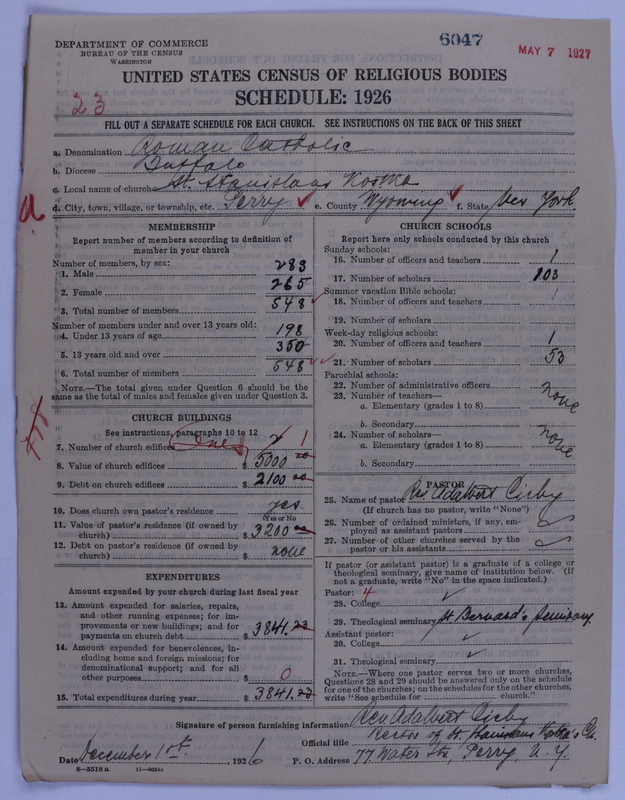 6047
MAY 7 1927
DEPARTMENT OF COMMERCE
BUREAU OF THE CENSUS
WASHINGTON
UNITED STATES CENSUS OF RELIGIOUS BODIES
SCHEDULE: 1926
23
FILL OUT A SEPARATE SCHEDULE FOR EACH CHURCH. SEE INSTRUCTIONS ON THE BACK OF THIS SHEET
a. Denomination Roman Catholic
b. Diocese Buffalo
c. Local name of church St. Stanislaus Kostka
d. City, town, village, or township, etc. Perry e. County Wyoming f. State New York
MEMBERSHIP
Report number of members according to definition of
member in your church
Number of members, by sex:
1. Male 283
2. Female 265
3. Total number of members 548
Number of members under and over 13 years old:
4. Under 13 years of age 198
5. 13 years old and over 350
6. Total number of members 548
NOTE.—The total given under Question 6 should be the
same as the total of males and females given under Question 3.
CHURCH BUILDINGS
See instructions, paragraphs 10 to 12
7. Number of church edifices 1
8. Value of church edifices $ 5000
9. Debt on church edifices $ 2100
10. Does church own pastor's residence yes
Yes or No
11. Value of pastor's residence (if owned by
church) $ 3200
12. Debt on pastor's residence (if owned by
church) $ none
EXPENDITURES
Amount expended by your church during last fiscal year
13. Amount expended for salaries, repairs,
and other running expenses; for im-
provements or new buildings; and for
payments on church debt $ 3841.23
14. Amount expended for benevolences, in-
cluding home and foreign missions; for
denominational support; and for all
other purposes $ 0
15. Total expenditures during year $ 3841.23
CHURCH SCHOOLS
Report here only schools conducted by this church
Sunday schools:
16. Number of officers and teachers 1
17. Number of scholars 103
Summer vacation Bible schools:
18. Number of officers and teachers
19. Number of scholars
Week-day religious schools:
20. Number of officers and teachers 1
21. Number of scholars 53
Parochial schools:
22. Number of administrative officers
23. Number of teachers— none
a. Elementary (grades 1 to 8)
b. Secondary
24. Number of scholars— none
a. Elementary (grades 1 to 8)
b. Secondary
PASTOR
25. Name of pastor Rev. Adalbert Cichy
(If church has no pastor, write "None")
26. Number of ordained ministers, if any, em-
ployed as assistant pastors
27. Number of other churches served by the
pastor or his assistants
If pastor (or assistant pastor) is a graduate of a college or
theological seminary, give name of institution below. (If
not a graduate, write "No" in the space indicated.)
Pastor: 4
28. College
29. Theological seminary St Bernard's Seminary.
Assistant pastor:
30. College
31. Theological seminary
NOTE.—Where one pastor serves two or more churches,
Questions 28 and 29 should be answered only on the schedule
for one of the churches; on the schedules for the other churches,
write "See schedule for church."
Signature of person furnishing information Rev Adalbert Cichy
Official title Rector of St. Stanislaus Kostka's Ch.
Date December 1st, 1926 P. O. Address 77 Water St., Perry, N. Y.
8—5518a 11—9054c